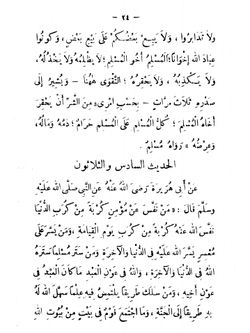 - ٢٤ -
وَلاَ تَدَابَرُوا، وَلاَ يَبِعْ بَعْضُكُمْ عَلَى بَيْعِ بَعْضٍ، وَكُونُوا
عِبَادَ اللهِ إِخْوَانًا؛ الْمُسْلِمُ أَخُو الْمُسْلِمِ: لاَ يَظْلِمُهُ وَلاَ يَخْذُلُهُ،
وَلاَ يَكْذِبُهُ، وَلاَ يَحْقِرُهُ؛ التَّقْوَى هٰهُنَا - وَيُشِيرُ إِلَى
صَدْرِهِ ثَلاَثَ مَرَّاتٍ - بِحَسْبِ امْرِىءٍ مِنَ الشَّرِّ أَنْ يَحْقِرَ
أَخَاهُ الْمُسْلِمَ؛ كُلُّ الْمُسْلِمِ عَلَى الْمُسْلِمِ حَرَامٌ: دَمُهُ وَمَالُهُ
وَعِرْضُهُ» رَوَاهُ مُسْلِمٌ.
الحديث السادس والثلاثون
عَنْ أَبِي هُرَيْرَةَ رَضِيَ اللهُ عَنْهُ عَنِ النَّبِيِّ صَلَّى اللهُ عَلَيْهِ
وَسَلَّمَ قَالَ: «مَنْ نَفَّسَ عَنْ مُؤْمِنٍ كُرْبَةً مِنْ كُرَبِ الدُّنْيَا
نَفَّسَ اللهُ عَنْهُ كُرْبَةً مِنْ كُرَبِ يَوْمِ الْقِيَامَةِ، وَمَنْ يَسَّرَ عَلَى
مُعْسِرٍ يَسَّرَ اللهُ عَلَيْهِ فِي الدُّنْيَا وَالآخِرَةِ، وَمَنْ سَتَرَ مُسْلِمًا سَتَرَهُ
اللهُ فِي الدُّنْيَا وَالآخِرَةِ، وَاللهُ فِي عَوْنِ الْعَبْدِ مَا كَانَ الْعَبْدُ فِي
عَوْنِ أَخِيهِ، وَمَنْ سَلَكَ طَرِيقًا يَلْتَمِسُ فِيهِ عِلْمًا سَهَّلَ اللهُ لَهُ
بِهِ طَرِيقًا إِلَى الْجَنَّةِ، وَمَا اجْتَمَعَ قَوْمٌ فِي بَيْتٍ مِنْ بُيُوتِ اللهِ